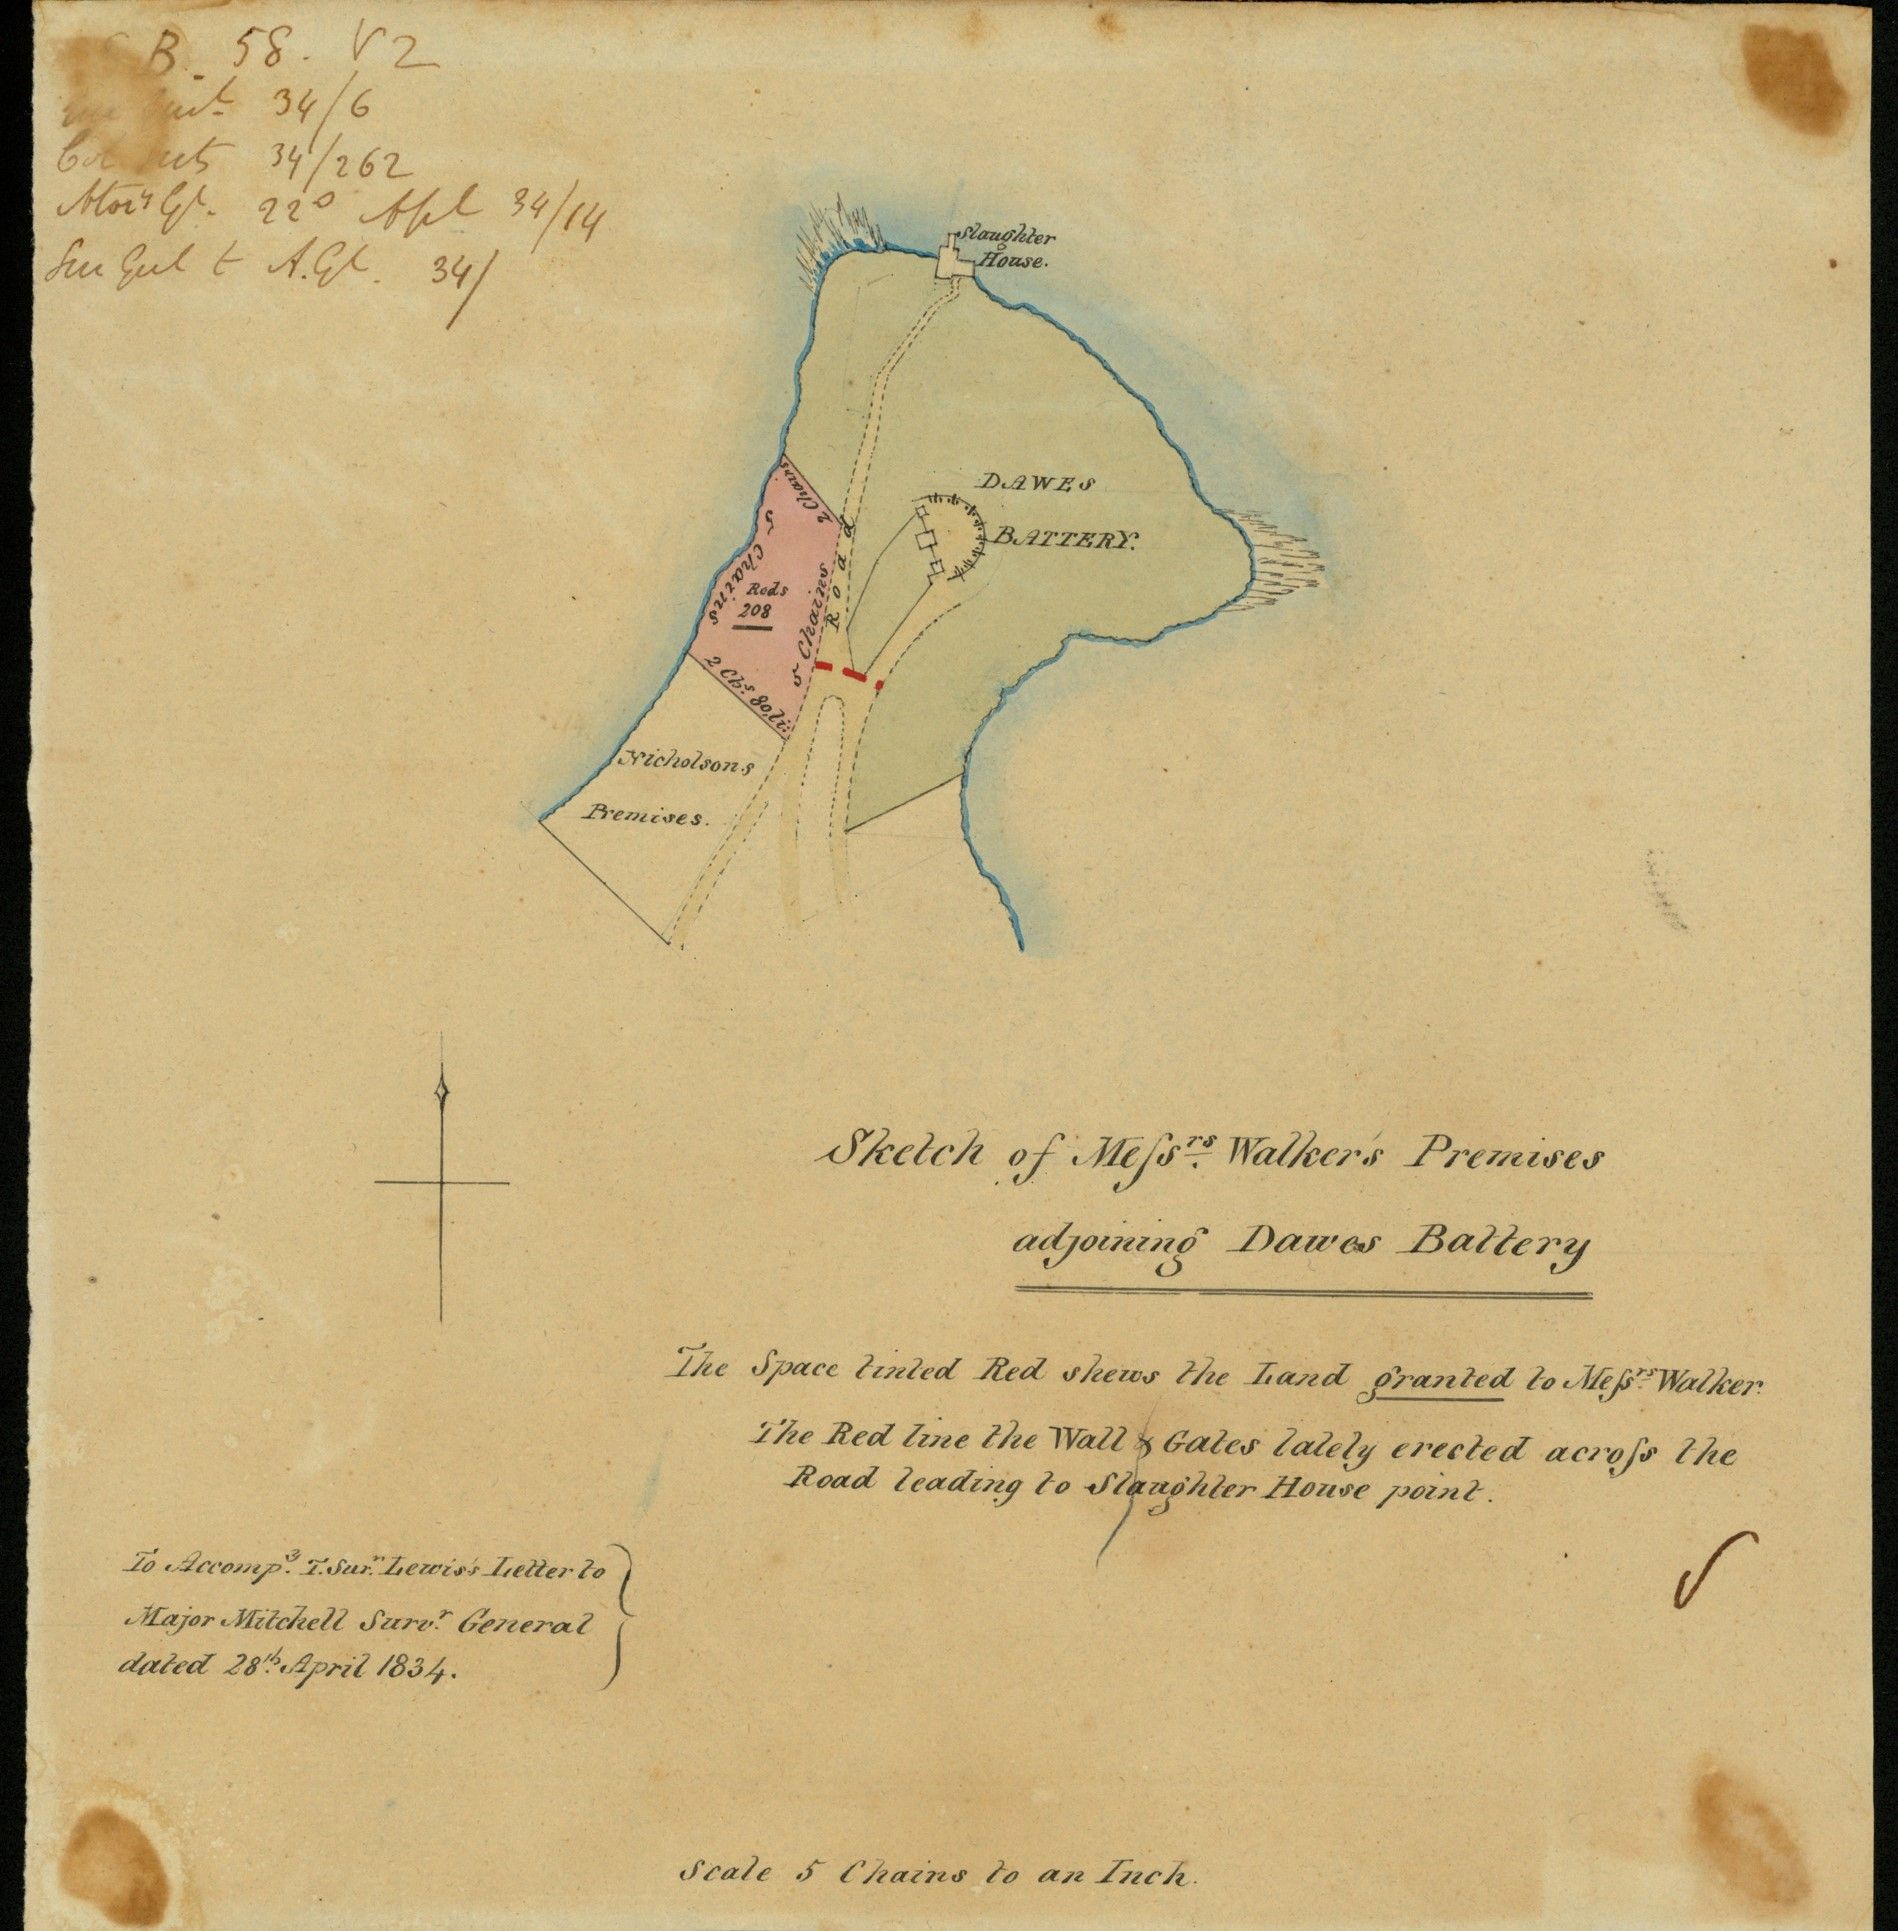 B. 58. V2
34/6
34/262
22 Apl 34/14
Sur Genl to A.Gl. 34/
Slaughter
House.
DAWES
BATTERY.
Road
2 Chains
5 Chains
Rods
208
5 Chains
2 Chs. 80 li:
Nicholsons
Premises.
Sketch of Meſsrs. Walker's Premises
adjoining Dawes Battery
The Space tinted Red shews the Land granted to Meſsrs. Walker.
The Red line the Wall & Gates lately erected acroſs the
Road leading to Slaughter House point.
To Accompy. T. Surr. Lewis's Letter to
Major Mitchell Survr. General
dated 28th. April 1834.
Scale 5 Chains to an Inch.